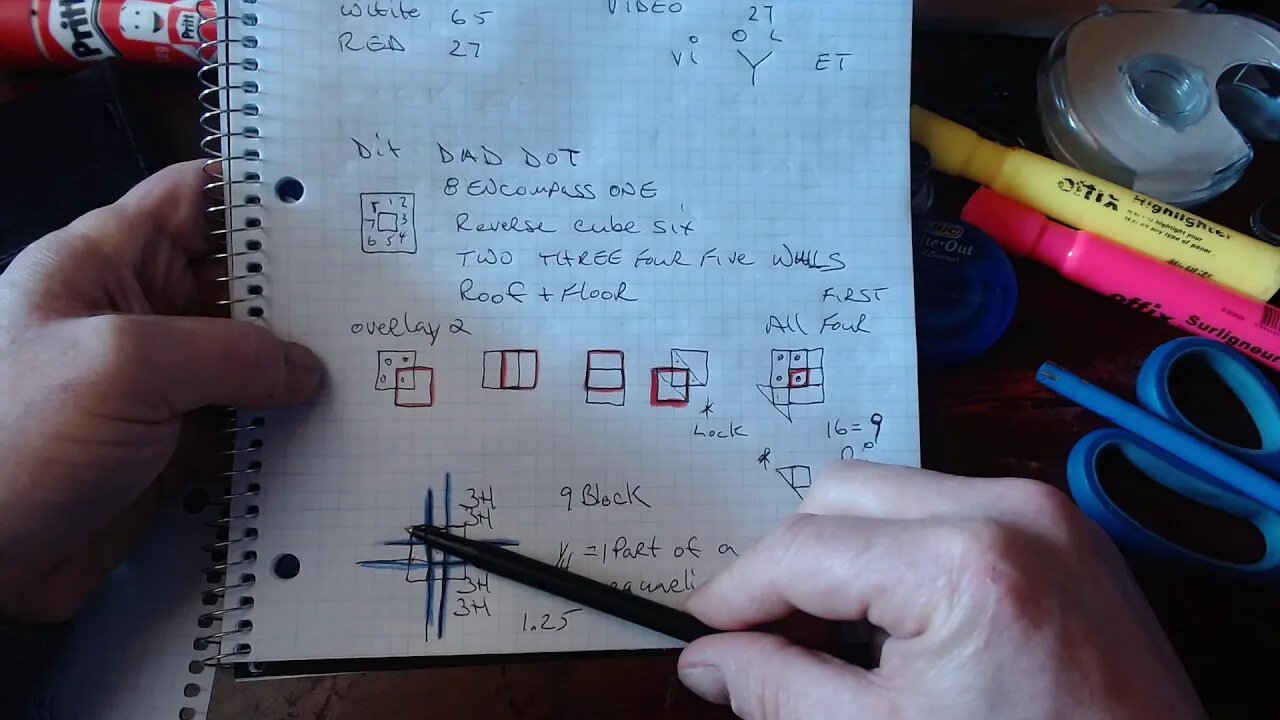 Pritt
Prit
White 65
RED 27
VIDEO
27
Vi O L ET
Y
Dit DAD DOT
8 ENCOMPASS ONE
8 1 2
7 3
6 5 4
Reverse cube six
TWO THREE FOUR FIVE WALLS
Roof + Floor
FIRST
overlay 2
All Four
* Lock
16 = 9
*
3H
3H
9 Block
1/4 = 1 Part of a
3H
3H
1.25
Offix
Highlighter
offix
Surligneur
BIC
ite-Out